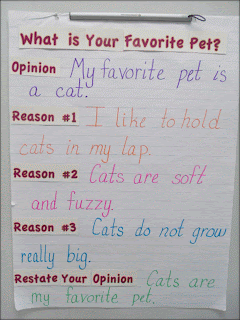 What is Your Favorite Pet?
Opinion My favorite pet is
a cat.
Reason #1 I like to hold
cats in my lap.
Reason #2 Cats are soft
and fuzzy.
Reason #3 Cats do not grow
really big.
Restate Your Opinion Cats are
my favorite pet.